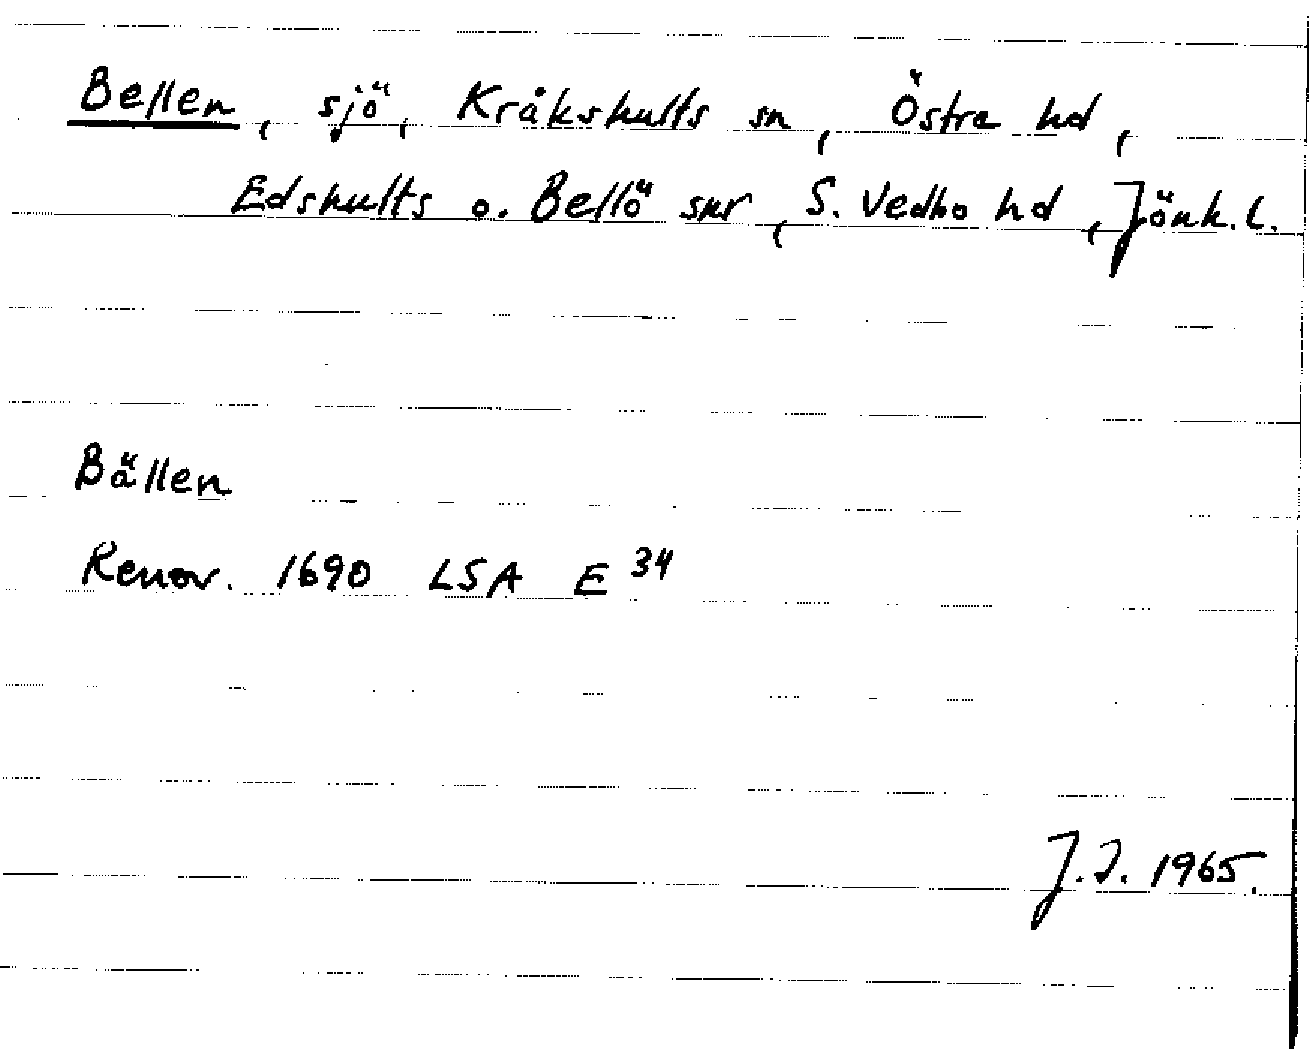 Bellen, sjö, Kråkshults sn, Östra hd,
Edshults o. Bellö snr, S. Vedbo hd, Jönk. l.
Bällen
Renov. 1690 LSA E 34
J.I. 1965.